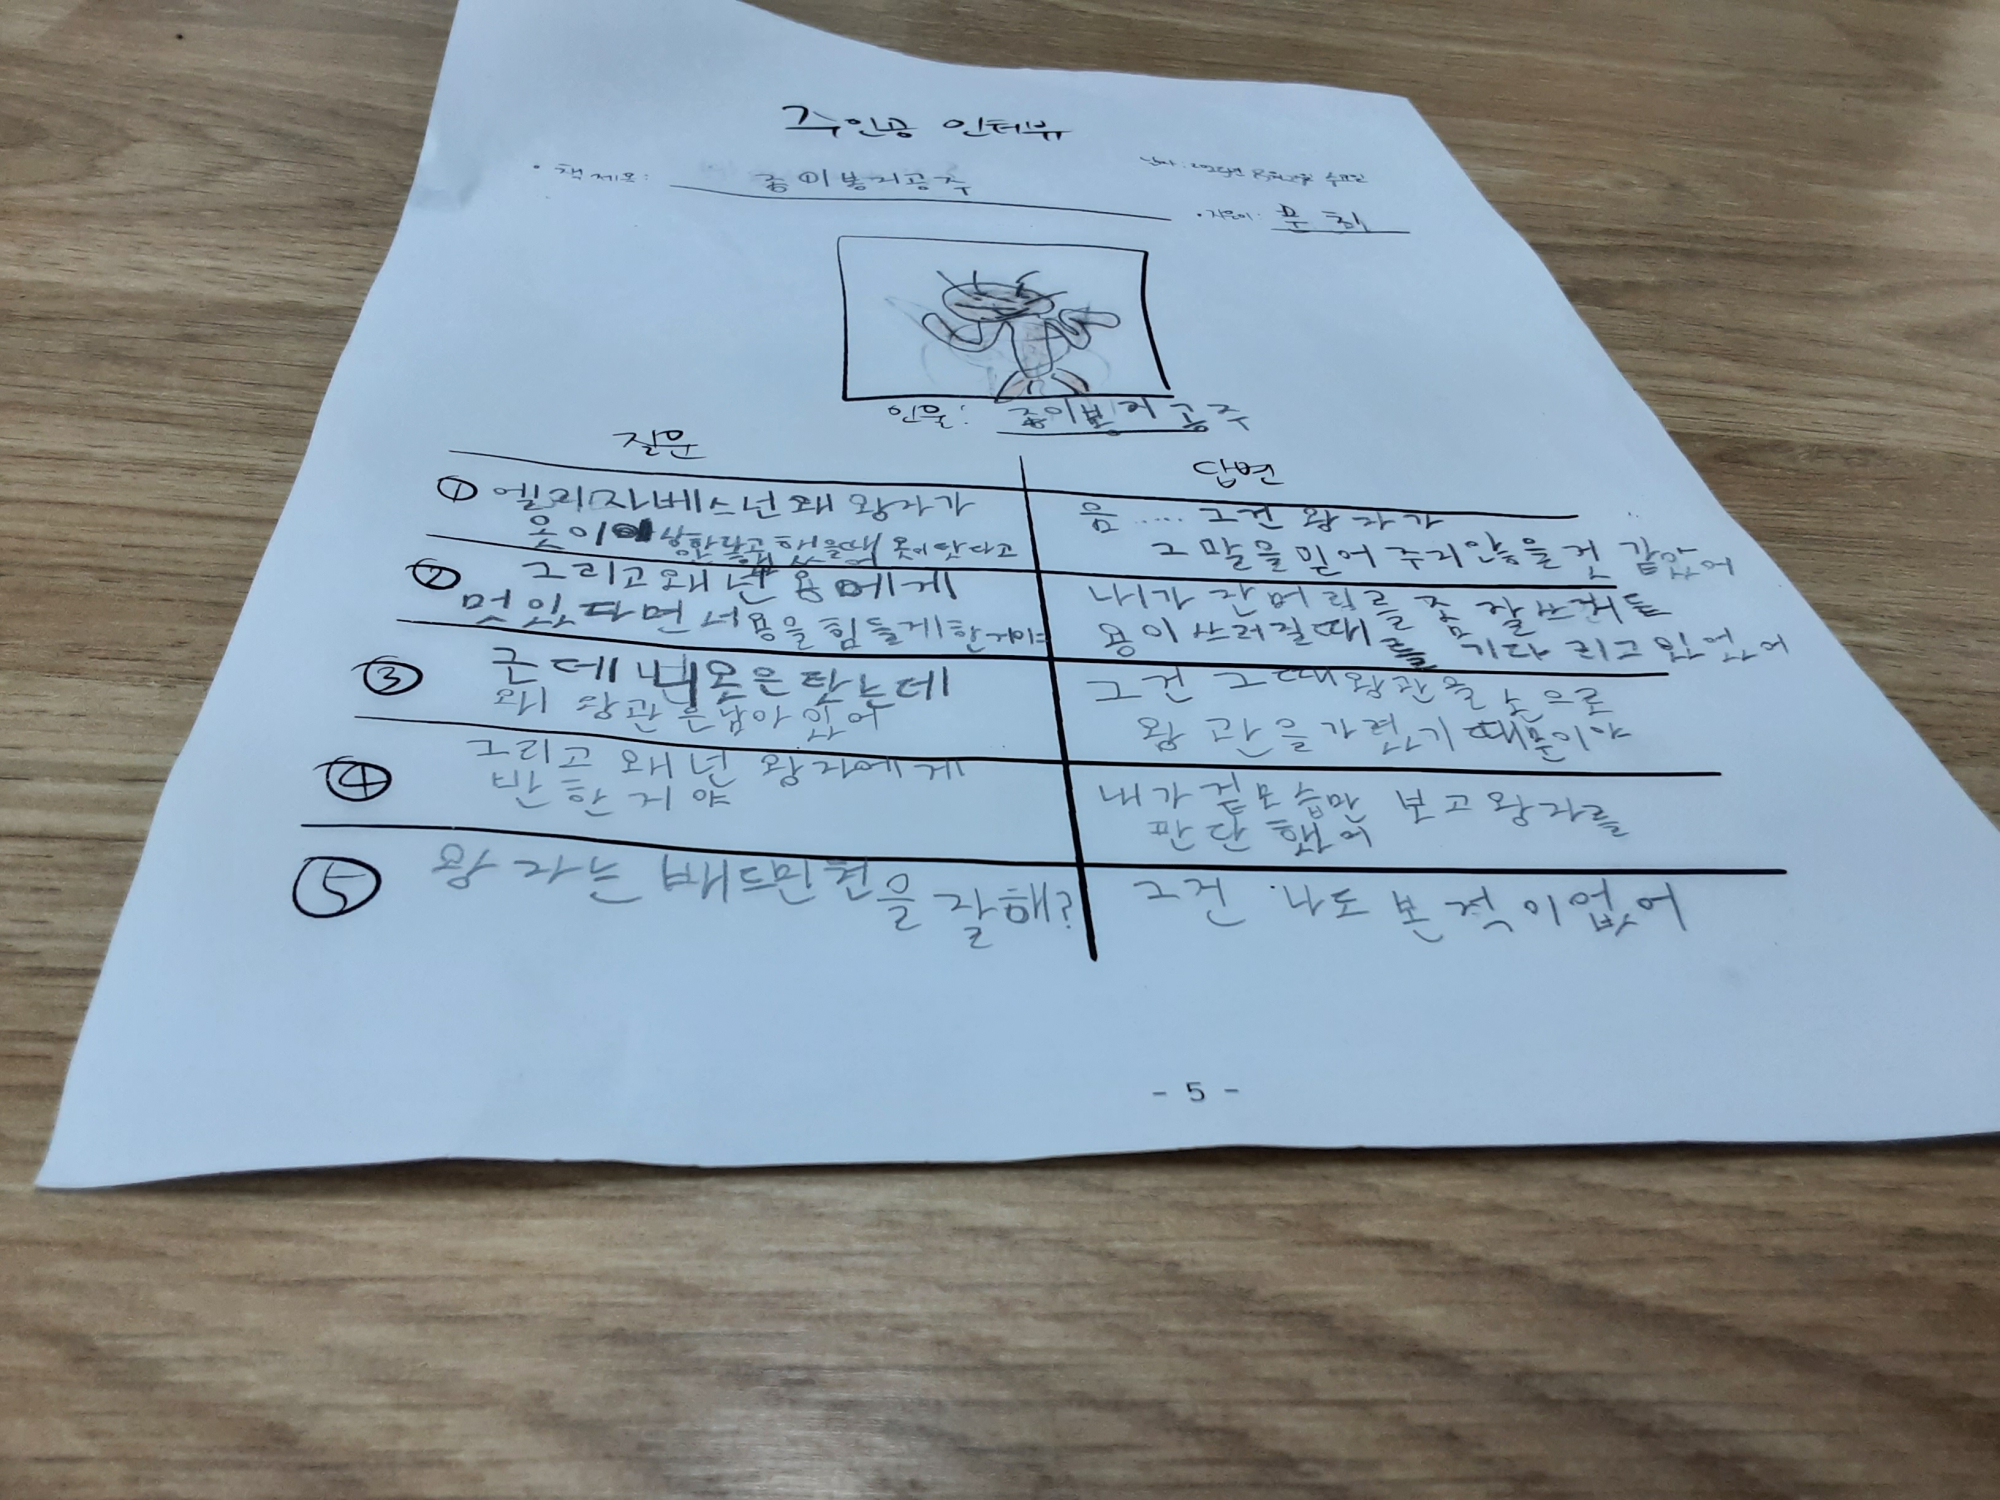 주인공 인터뷰
• 책 제목: 종이봉지공주
수요일
• 지은이: 문 최
인물: 종이봉지 공주
질문
답변
① 엘리자베스넌왜 왕자가
옷이 상한라고 했을때 옷이 탓다고
음..... 그건 왕자가
그 말을 믿어 주지않을것 같았어
② 그리고왜넌 용에게
멋있다면서 용을 힘들게한거야
나가 잔머리를 좀 잘쓰거든
용이 쓰러질때를 기다리고 있었어
③ 근데 넌옷은탔는데
왜 왕관은남아 있어
그건 그때왕관을 손으로
왕관을가렸기 때문이야
④ 그리고 왜넌 왕자에게
반한거야
내가 겉모습만 보고왕자를
판단했어
⑤ 왕자는 배드민턴을 잘해?
그건 나도 본적이없어
- 5 -